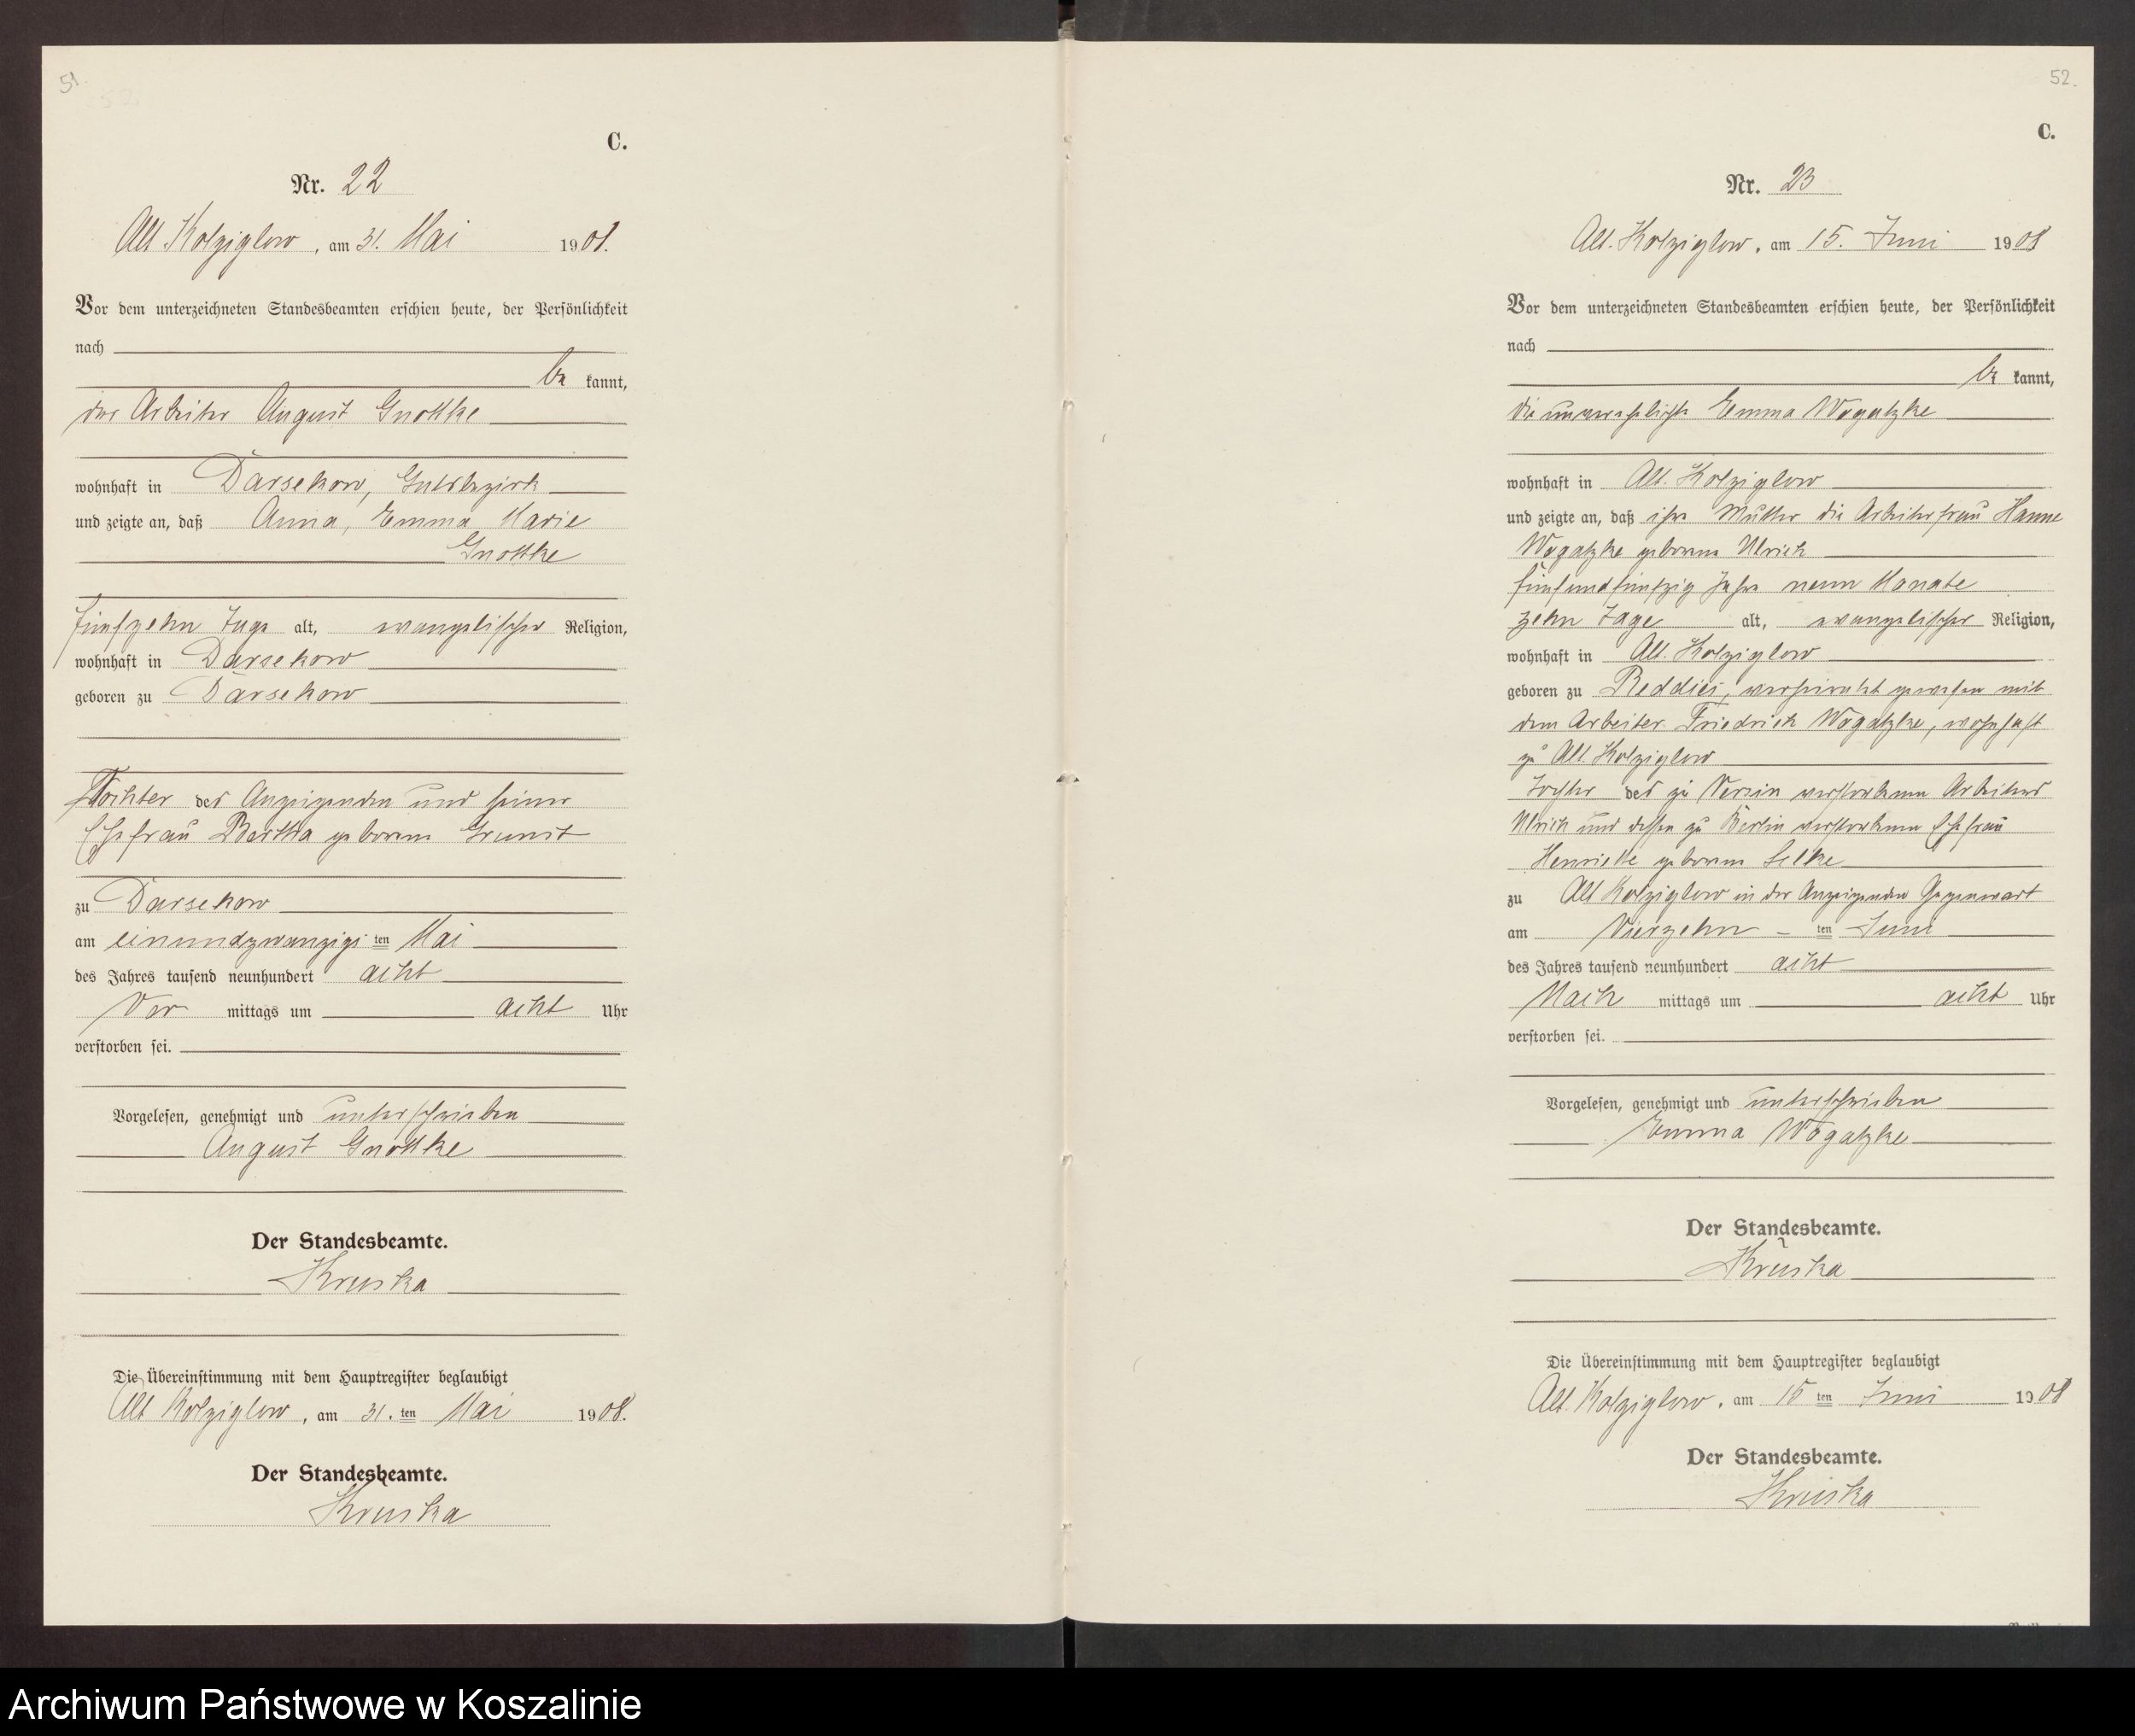 51.
C.
Nr. 22
Alt Kolziglow, am 31. Mai 1908.
Vor dem unterzeichneten Standesbeamten erschien heute, der Persönlichkeit
nach
be kannt,
der Arbeiter August Gnottke
wohnhaft in Darsekow, Gutsbezirk
und zeigte an, daß Anna, Emma Marie
Gnottke
fünfzehn Tage alt, evangelischer Religion,
wohnhaft in Darsekow
geboren zu Darsekow
Tochter des Anzeigenden und seiner
Ehefrau Bertha geborene
zu Darsekow
am einundzwanzigs ten Mai
des Jahres tausend neunhundert acht
Vor mittags um acht Uhr
verstorben sei.
Vorgelesen, genehmigt und unterschrieben
August Gnottke
Der Standesbeamte.
Kruska
Die Übereinstimmung mit dem Hauptregister beglaubigt
Alt Kolziglow, am 31. ten Mai 1908.
Der Standesbeamte.
Kruska
52.
C.
Nr. 23
Alt. Kolziglow, am 15. Juni 1908
Vor dem unterzeichneten Standesbeamten erschien heute, der Persönlichkeit
nach
be kannt,
die unverehelichte Emma Wogatzke
wohnhaft in Alt. Kolziglow
und zeigte an, daß ihre Mutter die Arbeiterfrau Hanne
Wogatzke geborene Ulrich
fünfundfünfzig Jahre neun Monate
zehn Tage alt, evangelischer Religion,
wohnhaft in Alt. Kolziglow
geboren zu Reddies, verheirathet gewesen mit
dem Arbeiter Friedrich Wogatzke, wohnhaft
zu Alt. Kolziglow
Tochter des zu Versin verstorbenen Arbeiters
Ulrich und dessen zu Berlin verstorbenen Ehefrau
Henriette geborene Selke
zu Alt Kolziglow in der Anzeigenden Gegenwart
am Vierzehn ten Juni
des Jahres tausend neunhundert acht
Nach mittags um acht Uhr
verstorben sei.
Vorgelesen, genehmigt und unterschrieben
Emma Wogatzke
Der Standesbeamte.
Kruska
Die Übereinstimmung mit dem Hauptregister beglaubigt
Alt. Kolziglow, am 15 ten Juni 1908
Der Standesbeamte.
Kruska
Archiwum Państwowe w Koszalinie